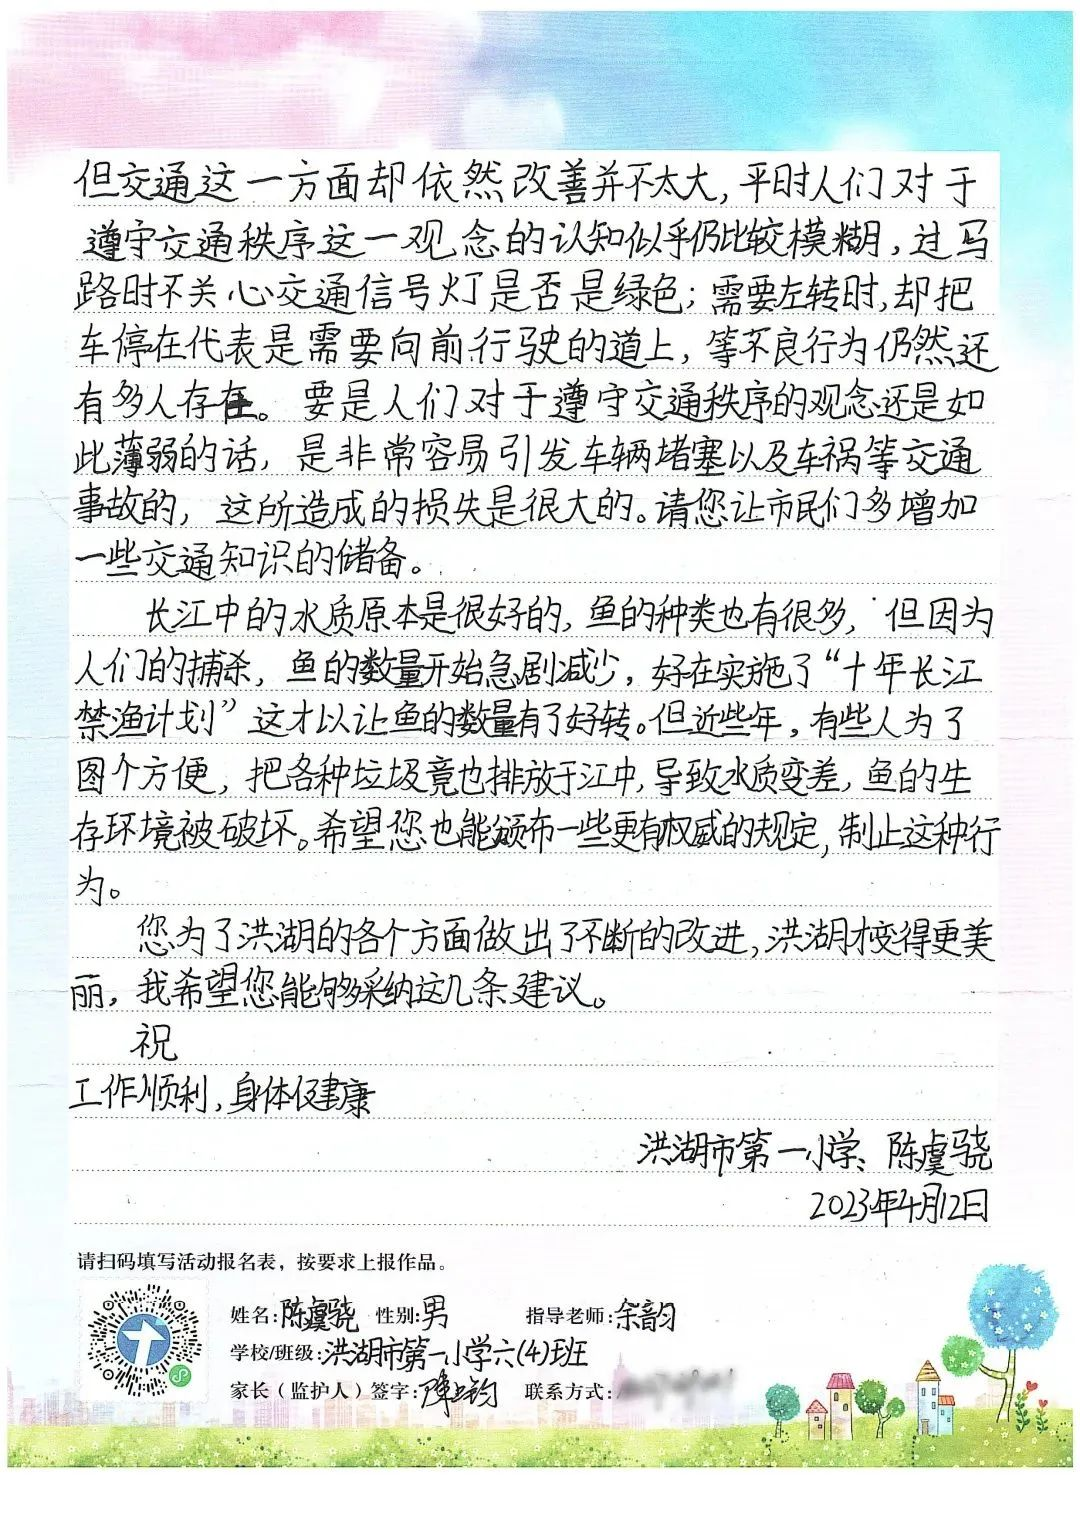 但交通这一方面却依然改善并不太大，平时人们对于
遵守交通秩序这一观念的认知似乎仍比较模糊，过马
路时不关心交通信号灯是否是绿色；需要左转时，却把
车停在代表是需要向前行驶的道上，等不良行为仍然还
有多人存在。要是人们对于遵守交通秩序的观念还是如
此薄弱的话，是非常容易引发车辆堵塞以及车祸等交通
事故的，这所造成的损失是很大的。请您让市民们多增加
一些交通知识的储备。
长江中的水质原本是很好的，鱼的种类也有很多，但因为
人们的捕杀，鱼的数量开始急剧减少，好在实施了“十年长江
禁渔计划”这才以让鱼的数量有了好转。但近些年，有些人为了
图个方便，把各种垃圾竟也排放于江中，导致水质变差，鱼的生
存环境被破坏。希望您也能颁布一些更有权威的规定，制止这种行
为。
您为了洪湖的各个方面做出了不断的改进，洪湖才变得更美
丽，我希望您能够采纳这几条建议。
祝
工作顺利，身体健康
洪湖市第一小学、陈虞骁
2023年4月12日
请扫码填写活动报名表，按要求上报作品。
姓名：陈虞骁 性别：男 指导老师：余韵
学校/班级：洪湖市第一小学六(4)班
家长（监护人）签字： 联系方式：